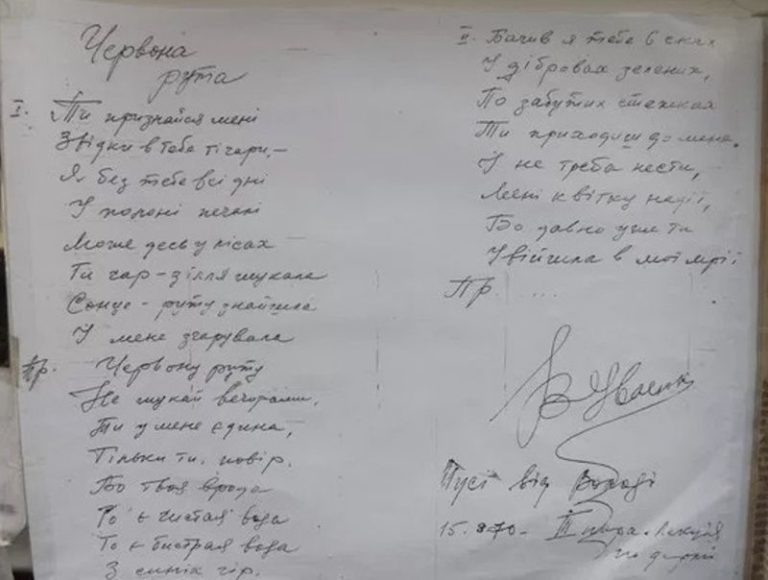 Червона
рута
I. Ти признайся мені
Звідки в тебе ті чари, –
Я без тебе всі дні
У полоні печалі
Може десь у лісах
Ти чар-зілля шукала
Сонце-руту знайшла
І мене зчарувала
Пр. Червону руту
Не шукай вечорами,
Ти у мене єдина,
Тільки ти, повір.
Бо твоя врода
То є чистая вода
То є бистрая вода
З синіх гір.
II. Бачив я тебе в снах
У дібровах зелених,
По забутих стежках
Ти приходиш до мене.
І не треба нести,
Мені квітку надії,
Бо давно уже ти
Увійшла в мої мрії
Пр. ....
В Івасюк
від Володі
15.